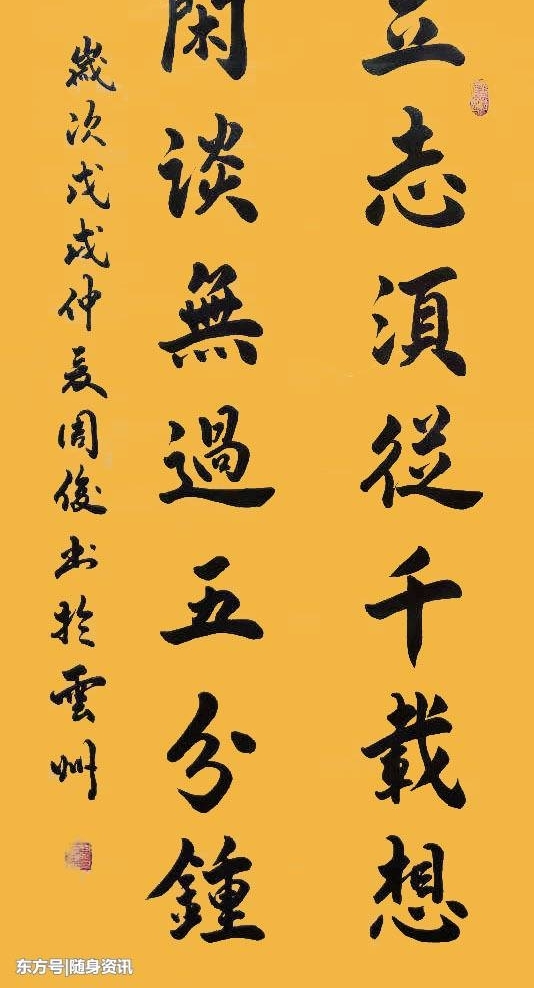 立志須從千載想
閑談無過五分鍾
歲次戊戌仲夏周俊书於雲州
东方号|随身资讯